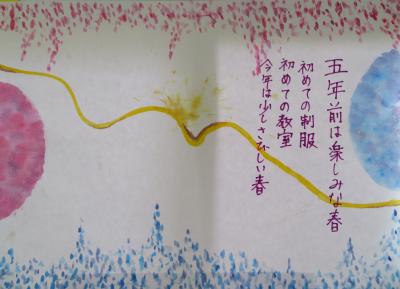 五年前は楽しみな春
初めての制服
初めての教室
今年は少しさびしい春